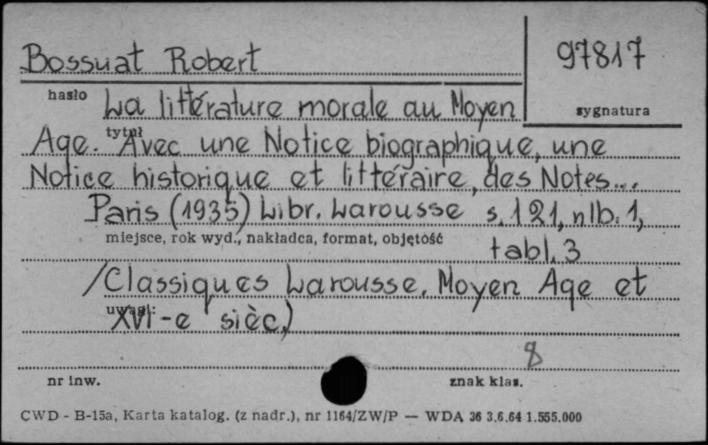 Bossuat Robert
97817
hasło
La littérature morale au Moyen
sygnatura
tytuł
Age. Avec une Notice biographique, une
Notice historique et littéraire, des Notes...
Paris (1935) Libr. Larousse s. 121, nlb. 1,
miejsce, rok wyd., nakładca, format, objętość
tabl. 3
/Classiques Larousse. Moyen Age et
uwagi:
XVI-e sièc.)
8
nr inw.
znak klas.
CWD - B-15a, Karta katalog. (z nadr.), nr 1164/ZW/P — WDA 36 3.6.64 1.555.000